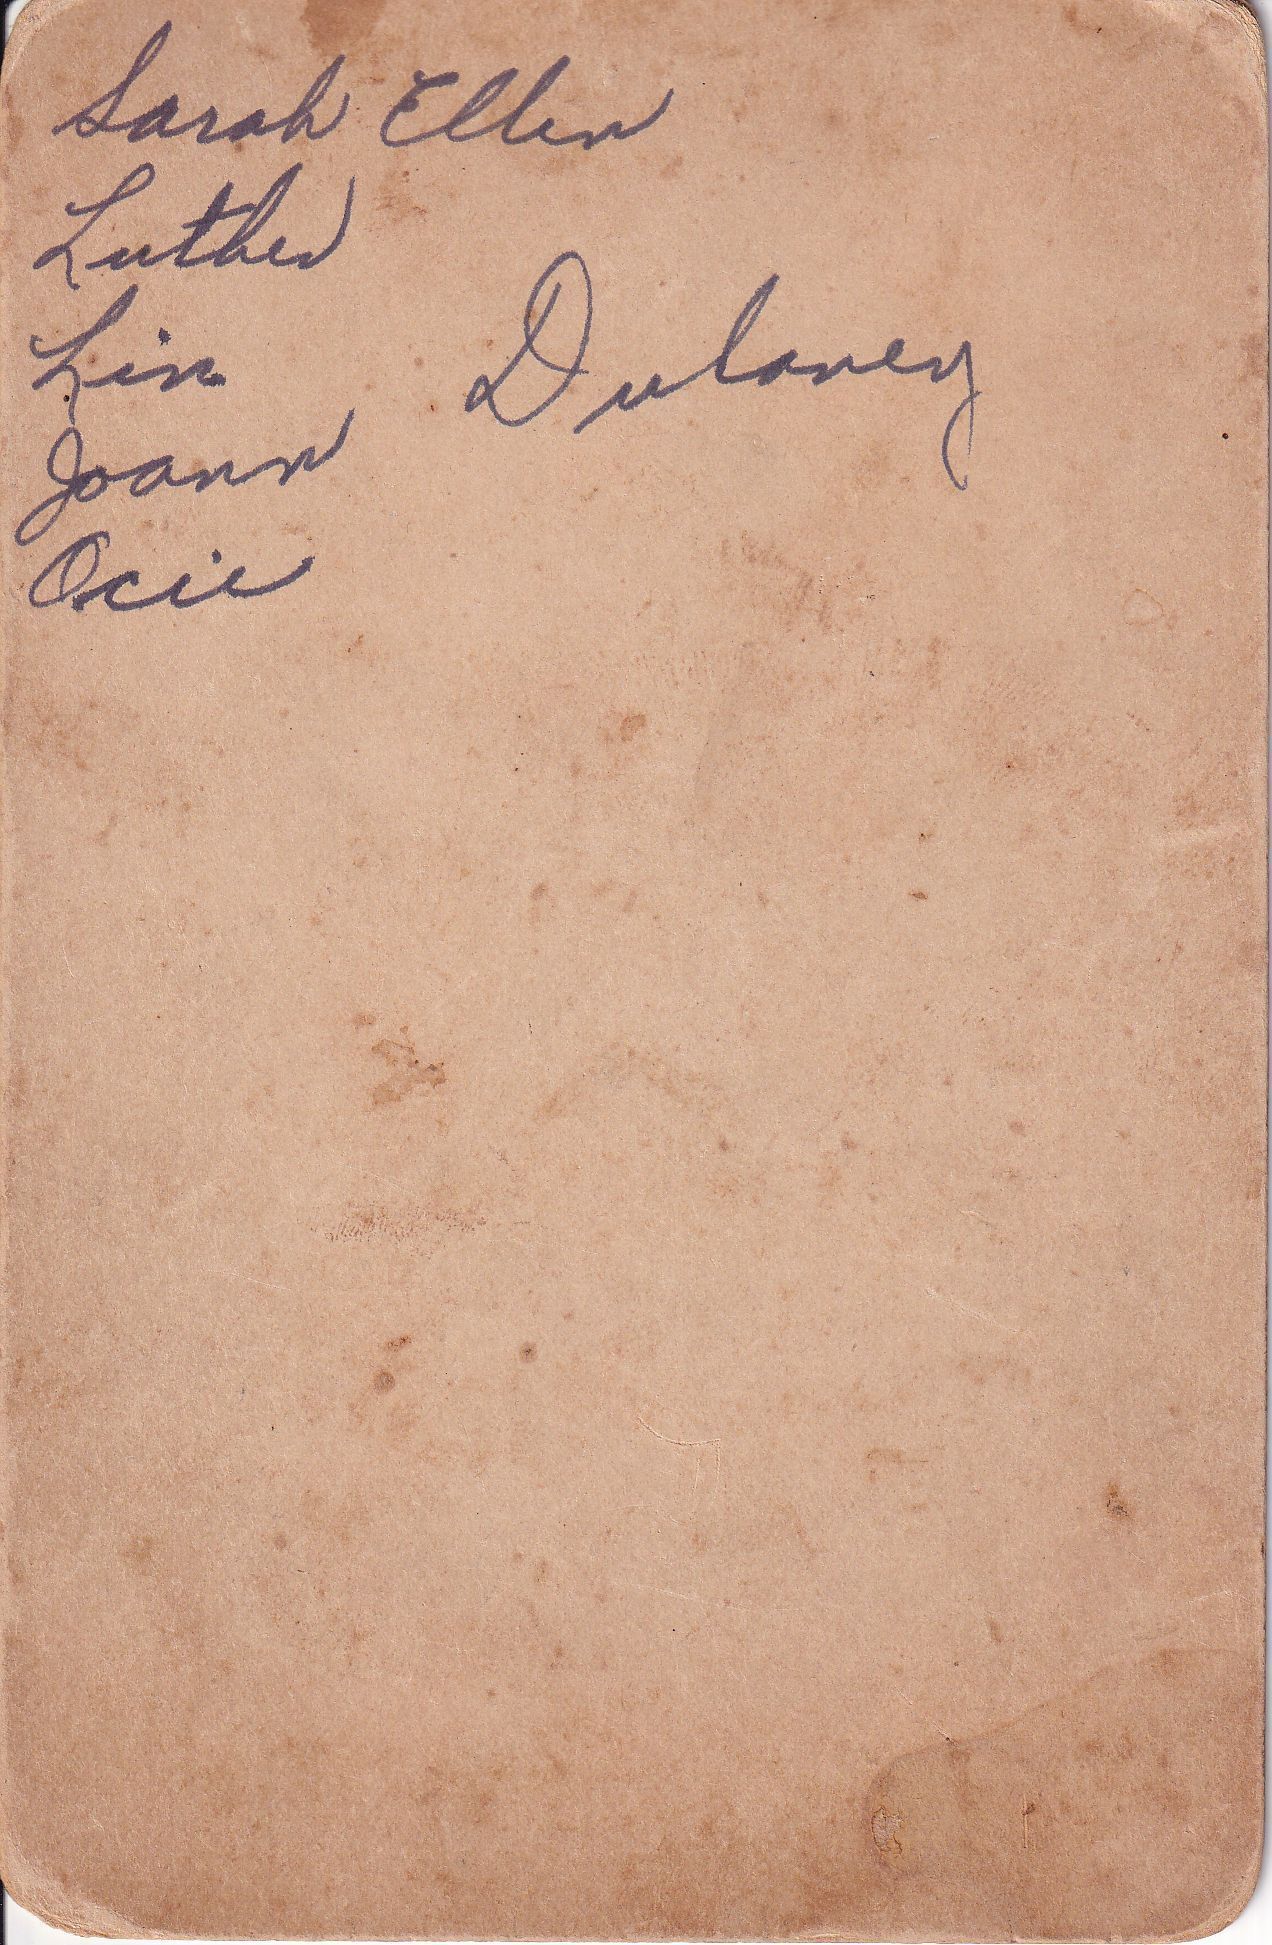 Sarah Ellen
Luther
Lin
Dulaney
Joann
Ocie